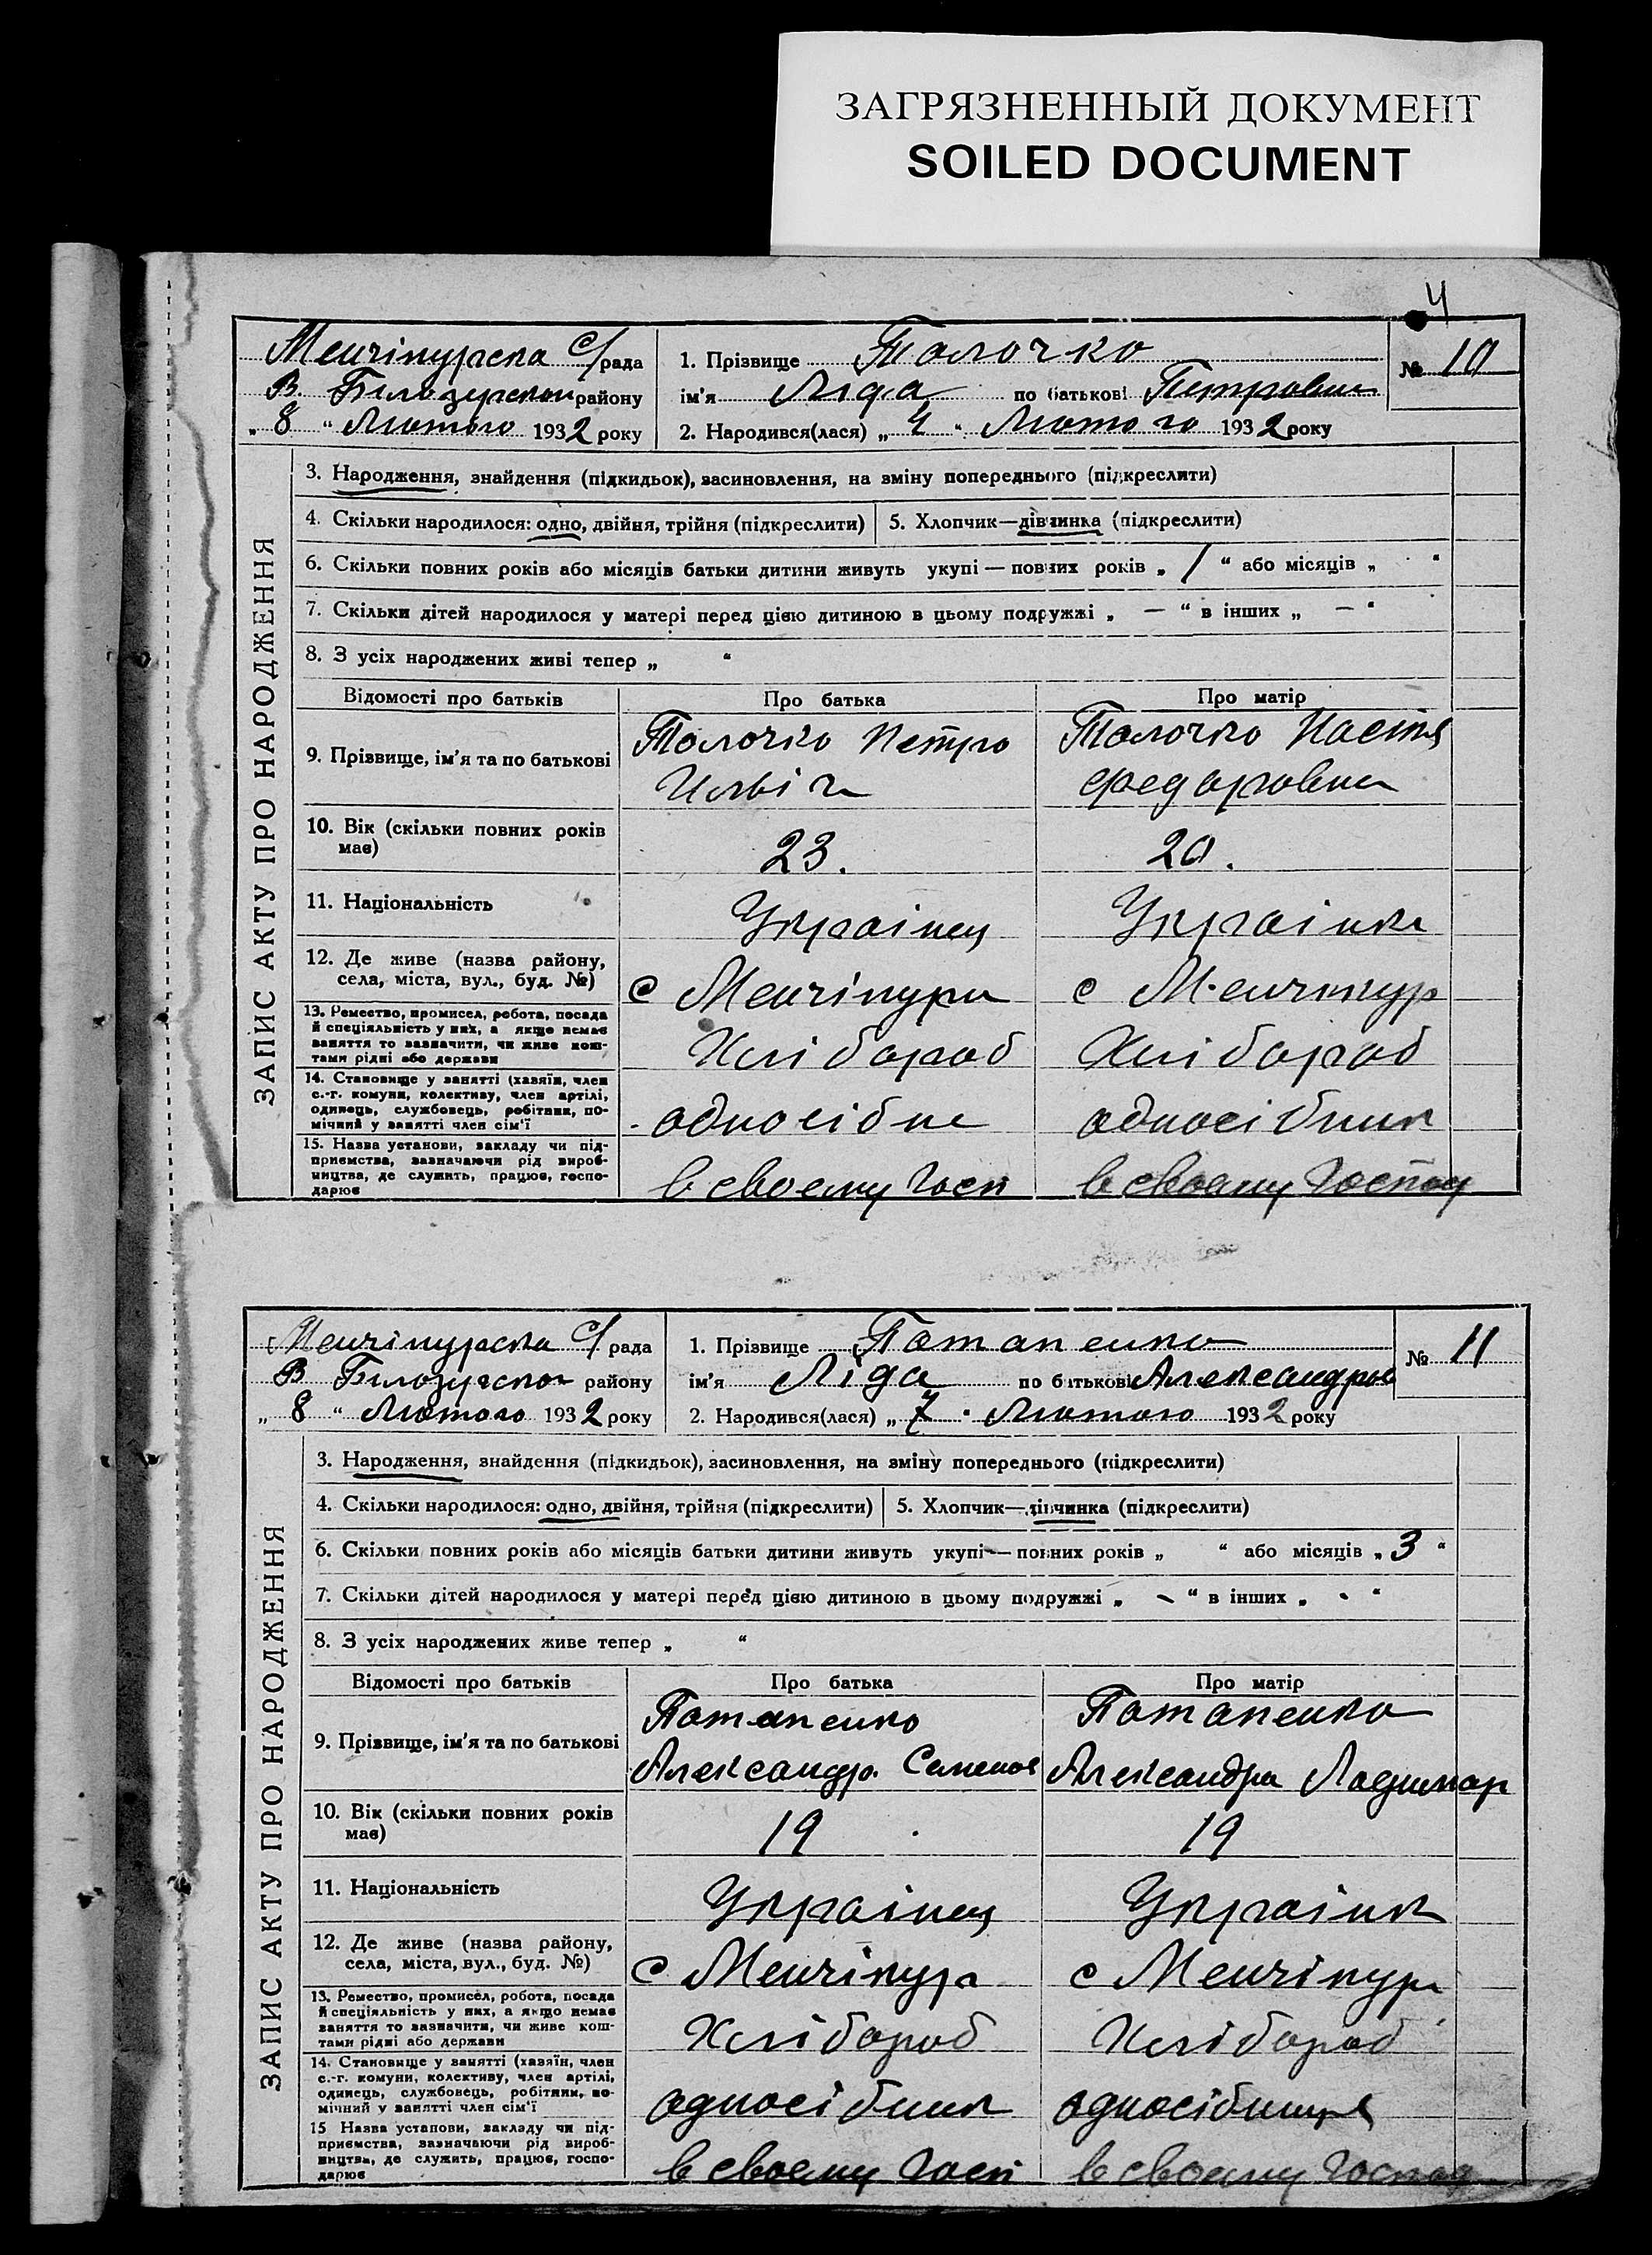 ЗАГРЯЗНЕННЫЙ ДОКУМЕНТ
SOILED DOCUMENT
4
Менчікурска с/рада 1. Прізвище Толочко № 10
В. Білозерской району ім'я Ліда по батькові Петровна
„ 8 “ Лютого 1932 року 2. Народився(лася) „ 4 “ Лютого 1932 року
ЗАПИС АКТУ ПРО НАРОДЖЕННЯ
3. Народження, знайдення (підкидьок), засиновлення, на зміну попереднього (підкреслити)
4. Скільки народилося: одно, двійня, трійня (підкреслити) 5. Хлопчик—дівчинка (підкреслити)
6. Скільки повних років або місяців батьки дитини живуть укупі — повних років „ 1 “ або місяців „ “
7. Скільки дітей народилося у матері перед цією дитиною в цьому подружжі „ — “ в інших „ — “
8. З усіх народжених живі тепер „ “
Відомості про батьків Про батька Про матір
9. Прізвище, ім'я та по батькові Толочко Петро Толочко Настя
Ильіч Федоровна
10. Вік (скільки повних років
має) 23. 20.
11. Національність Українец Українка
12. Де живе (назва району,
села, міста, вул., буд. №) с Менчікури с Менчикур
13. Ремество, промисел, робота, посада
й спеціяльність у них, а якщо немає
заняття то зазначити, чи живе кош-
тами рідні або держави Хлібороб Хлібороб
14. Становище у занятті (хазяїн, член
с.-г. комуни, колективу, член артілі,
одинець, службовець, робітник, по-
мічний у занятті член сім'ї односібне односібник
15. Назва установи, закладу чи під-
приємства, зазначаючи рід вироб-
ництва, де служить, працює, госпо-
дарює в своему Госп в своему Господ
Менчікурска с/рада 1. Прізвище Потапенко № 11
В Білозерской району ім'я Ліда по батькові Александров
„ 8 “ Лютого 1932 року 2. Народився(лася) „ 7 “ Лютого 1932 року
ЗАПИС АКТУ ПРО НАРОДЖЕННЯ
3. Народження, знайдення (підкидьок), засиновлення, на зміну попереднього (підкреслити)
4. Скільки народилося: одно, двійня, трійня (підкреслити) 5. Хлопчик—дівчинка (підкреслити)
6. Скільки повних років або місяців батьки дитини живуть укупі — повних років „ “ або місяців „ 3 “
7. Скільки дітей народилося у матері перед цією дитиною в цьому подружжі „ - “ в інших „ - “
8. З усіх народжених живе тепер „ “
Відомості про батьків Про батька Про матір
9. Прізвище, ім'я та по батькові Потапенко Потапенко
Александр. Семенов Александра Ладимар
10. Вік (скільки повних років
має) 19 19
11. Національність Українец Українк
12. Де живе (назва району,
села, міста, вул., буд. №) с Менчікура с Менчікури
13. Ремество, промисел, робота, посада
й спеціяльність у них, а якщо немає
заняття то зазначити, чи живе кош-
тами рідні або держави Хлібороб Хлібороб
14. Становище у занятті (хазяїн, член
с.-г. комуни, колективу, член артілі,
одинець, службовець, робітник, по-
мічний у занятті член сім'ї односібник односібниця
15 Назва установи, закладу чи під-
приємства, зазначаючи рід вироб-
ництва, де служить, працює, госпо-
дарює в своему Госп в своему Господ